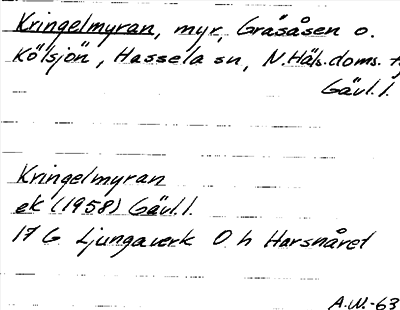 Kringelmyran, myr, Gråsåsen o.
Kölsjön, Hassela sn, N.Häls.doms.
Gävl.l.
Kringelmyran
ek (1958) Gävl.l.
17 G Ljungaverk O h Harsnåret
A.W.-63